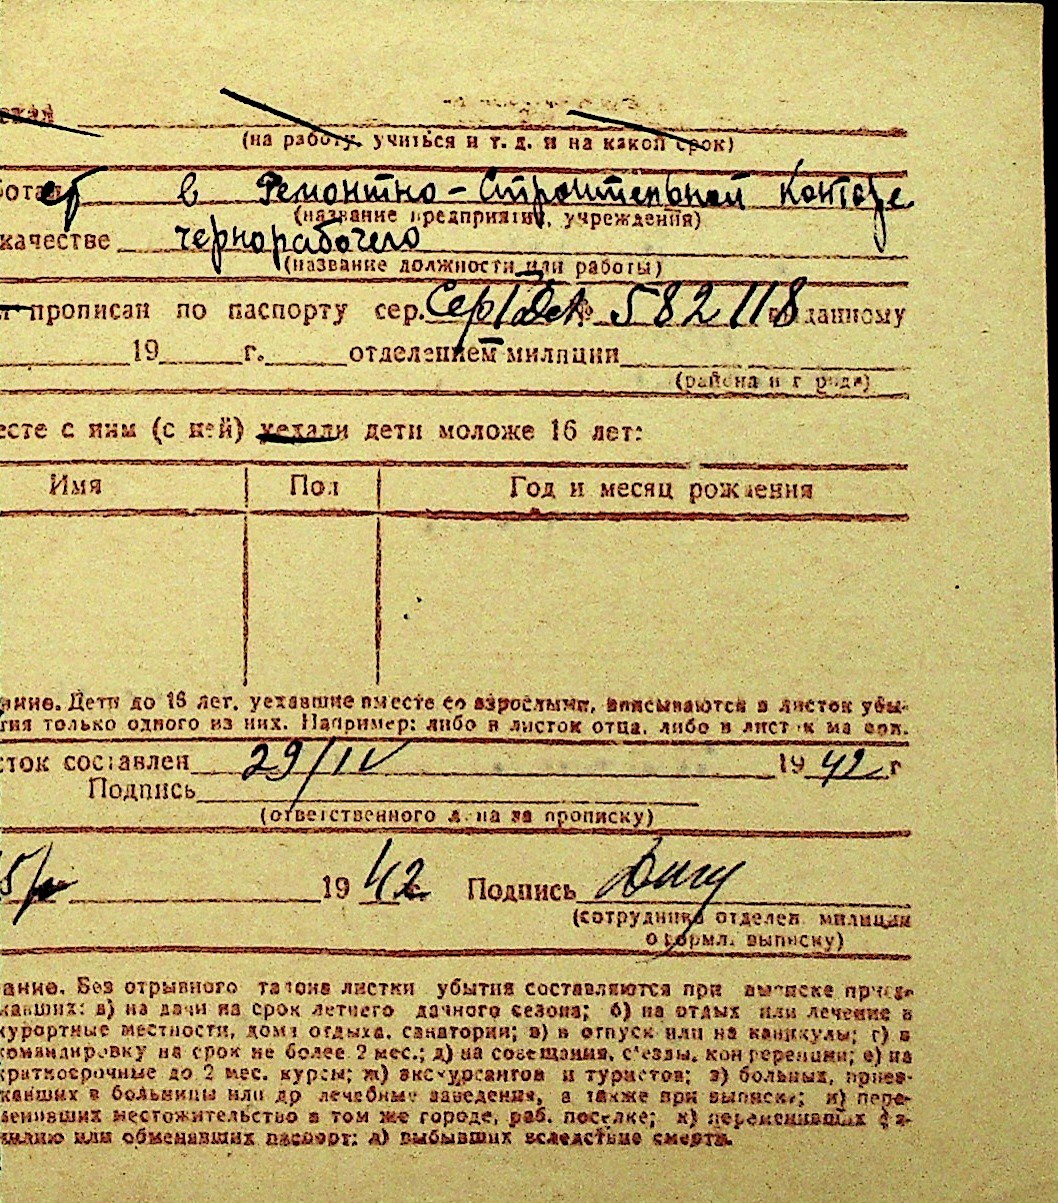 ская
(на работу, учиться и т. д. и на какой срок)
ботает в Ремонтно-Строительной Конторе
(название предприятия, учреждения)
качестве чернорабочего
(название должности или работы)
прописан по паспорту сер. № 582118 выданному
19 г. отделением милиции
(района и города)
есте с ним (с ней) уехали дети моложе 16 лет:
Имя Пол Год и месяц рождения
ание. Дети до 16 лет, уехавшие вместе со взрослыми, вписываются в листок убы-
тия только одного из них. Например: либо в листок отца, либо в листок матери.
сток составлен 29/IV 1942 г
Подпись
(ответственного лица за прописку)
5/ 1942 г. Подпись
(сотрудника отделен. милиции
оформл. выписку)
ание. Без отрывного талона листки убытия составляются при выписке приез-
жавших: а) на дачи на срок летнего дачного сезона; б) на отдых или лечение в
курортные местности, дома отдыха, санатории; в) в отпуск или на каникулы; г) в
командировку на срок не более 2 мес.; д) на совещания, съезды, конференции; е) на
краткосрочные до 2 мес. курсы; ж) экскурсантов и туристов; з) больных, приез-
жавших в больницы или др лечебные заведения, а также при выписке; и) пере-
менивших местожительство в том же городе, раб. поселке; к) переменивших фа-
милию или обменявших паспорт; л) выбывших вследствие смерти.